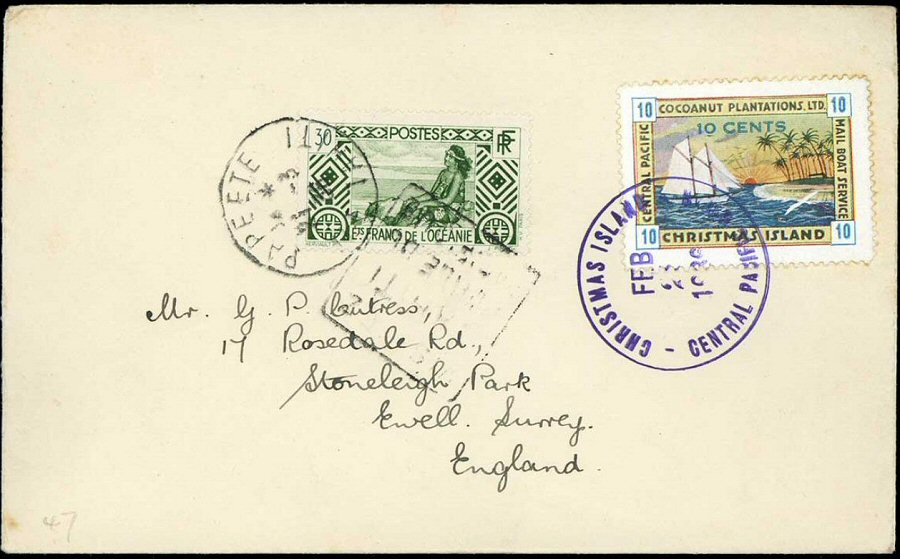 30 POSTES RF
ÉTS FRANCS DE L'OCÉANIE
PAPEETE TAHITI
10 COCOANUT PLANTATIONS. LTD. 10
10 CENTS
CENTRAL PACIFIC
MAIL BOAT SERVICE
10 CHRISTMAS ISLAND 10
CHRISTMAS ISLAND - CENTRAL PACIFIC
FEB
Mr. G. P.
17 Rosedale Rd.,
Stoneleigh Park
Ewell. Surrey.
England.
47